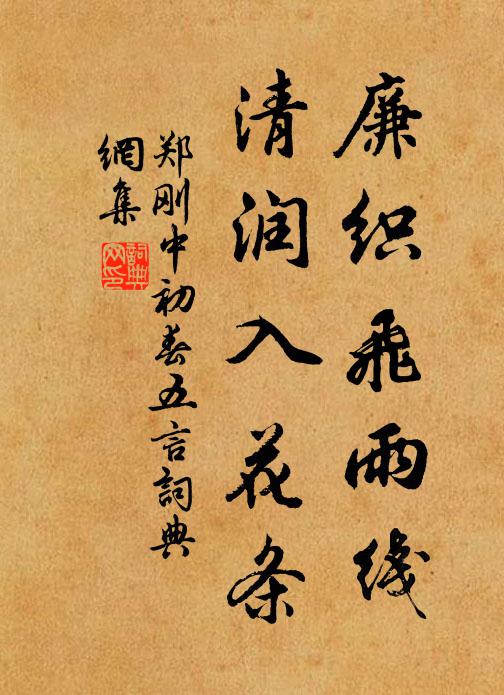 廉织飛雨线
清润入花条
郑刚中初春五言詞典
網集
詞典網印